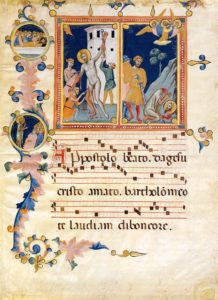 Apostolo beato. da gesu
cristo amato. bartholomeo
te laudiam di bon core.